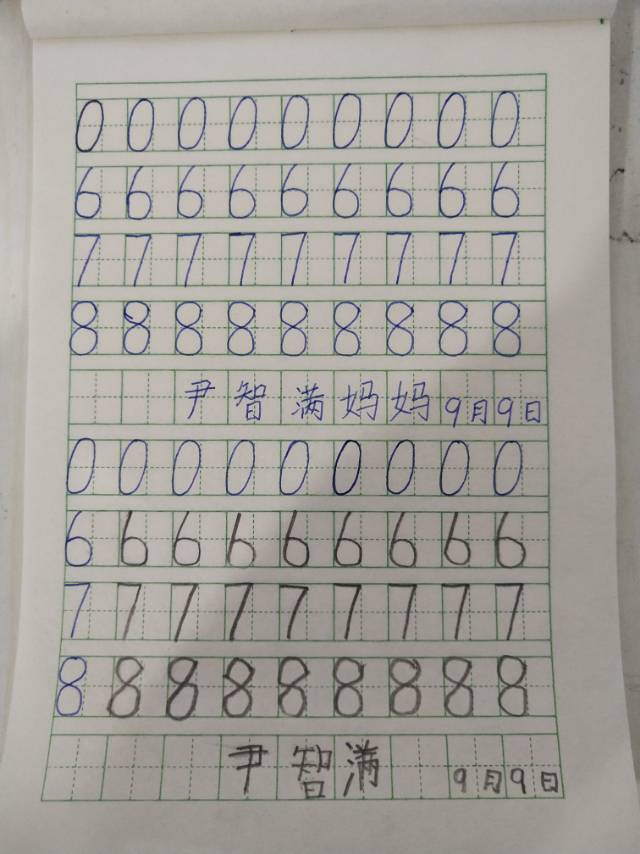 0 0 0 0 0 0 0 0 0
6 6 6 6 6 6 6 6 6
7 7 7 7 7 7 7 7 7
8 8 8 8 8 8 8 8 8
尹智满妈妈9月9日
0 0 0 0 0 0 0 0 0
6 6 6 6 6 6 6 6 6
7 7 7 7 7 7 7 7 7
8 8 8 8 8 8 8 8 8
尹智满 9月9日